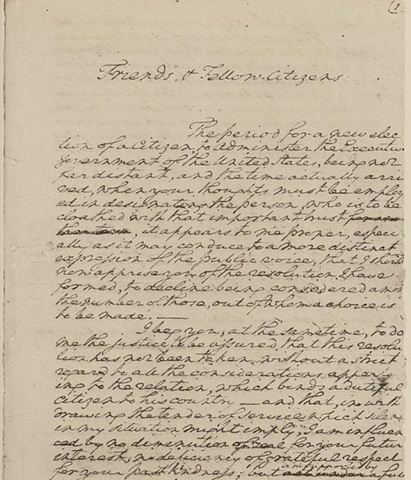 1
Friends, & Fellow-Citizens
The period for a new elec
tion of a Citizen, to Administer the Executive
Government of the United States, being not
far distant, and the time actually arri
ved, when your thoughts must be employ
ed in designating the person, who is to be
cloathed with that important trust
, it appears to me proper, especi
ally as it may conduce to a more distinct
expression of the public voice, that I should
now apprise you of the resolution I have
formed, to decline being considered among
the number of those, out of whom a choice is
to be made.
I beg you, at the same time, to do
me the justice to be assured, that this resolu
tion has not been taken, without a strict
regard to all the considerations appertain
ing to the relation, which binds a dutiful
Citizen to his country — and that, in with
drawing the tender of service which silence
in my situation might imply, I am influen
ced by no diminution of zeal for your future
interest, no deficiency of grateful respect
for your past kindness; but
am supported by
a full